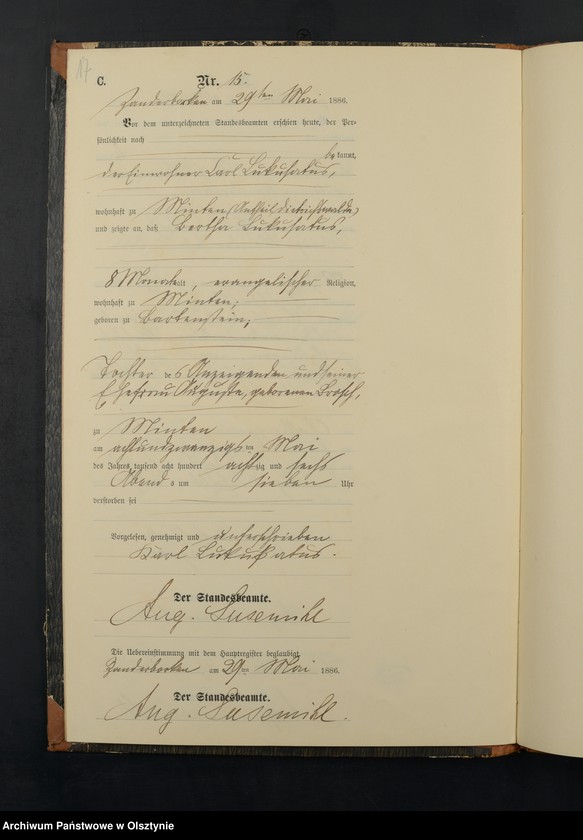 17
C.
Nr. 15.
Zanderborken am 29ten Mai 1886.
Vor dem unterzeichneten Standesbeamten erschien heute, der Per-
sönlichkeit nach
bekannt,
der Einwohner Carl Lukusatus,
wohnhaft zu Minten, (Antheil Dietrichswalde)
und zeigte an, daß Bertha Lukusatus,
8 Monat alt, evangelischer Religion,
wohnhaft zu Minten,
geboren zu Bartenstein,
Tochter des Anzeigenden und seiner
Ehefrau Auguste, geborenen Brosch,
zu Minten
am achtundzwanzigsten Mai
des Jahres tausend acht hundert achtzig und sechs
Abends um sieben Uhr
verstorben sei
Vorgelesen, genehmigt und unterschrieben
Karl Lukußatus.
Der Standesbeamte.
Aug. Susemihl
Die Uebereinstimmung mit dem Hauptregister beglaubigt
Zanderborken am 29ten Mai 1886.
Der Standesbeamte.
Aug. Susemihl.
Archiwum Państwowe w Olsztynie